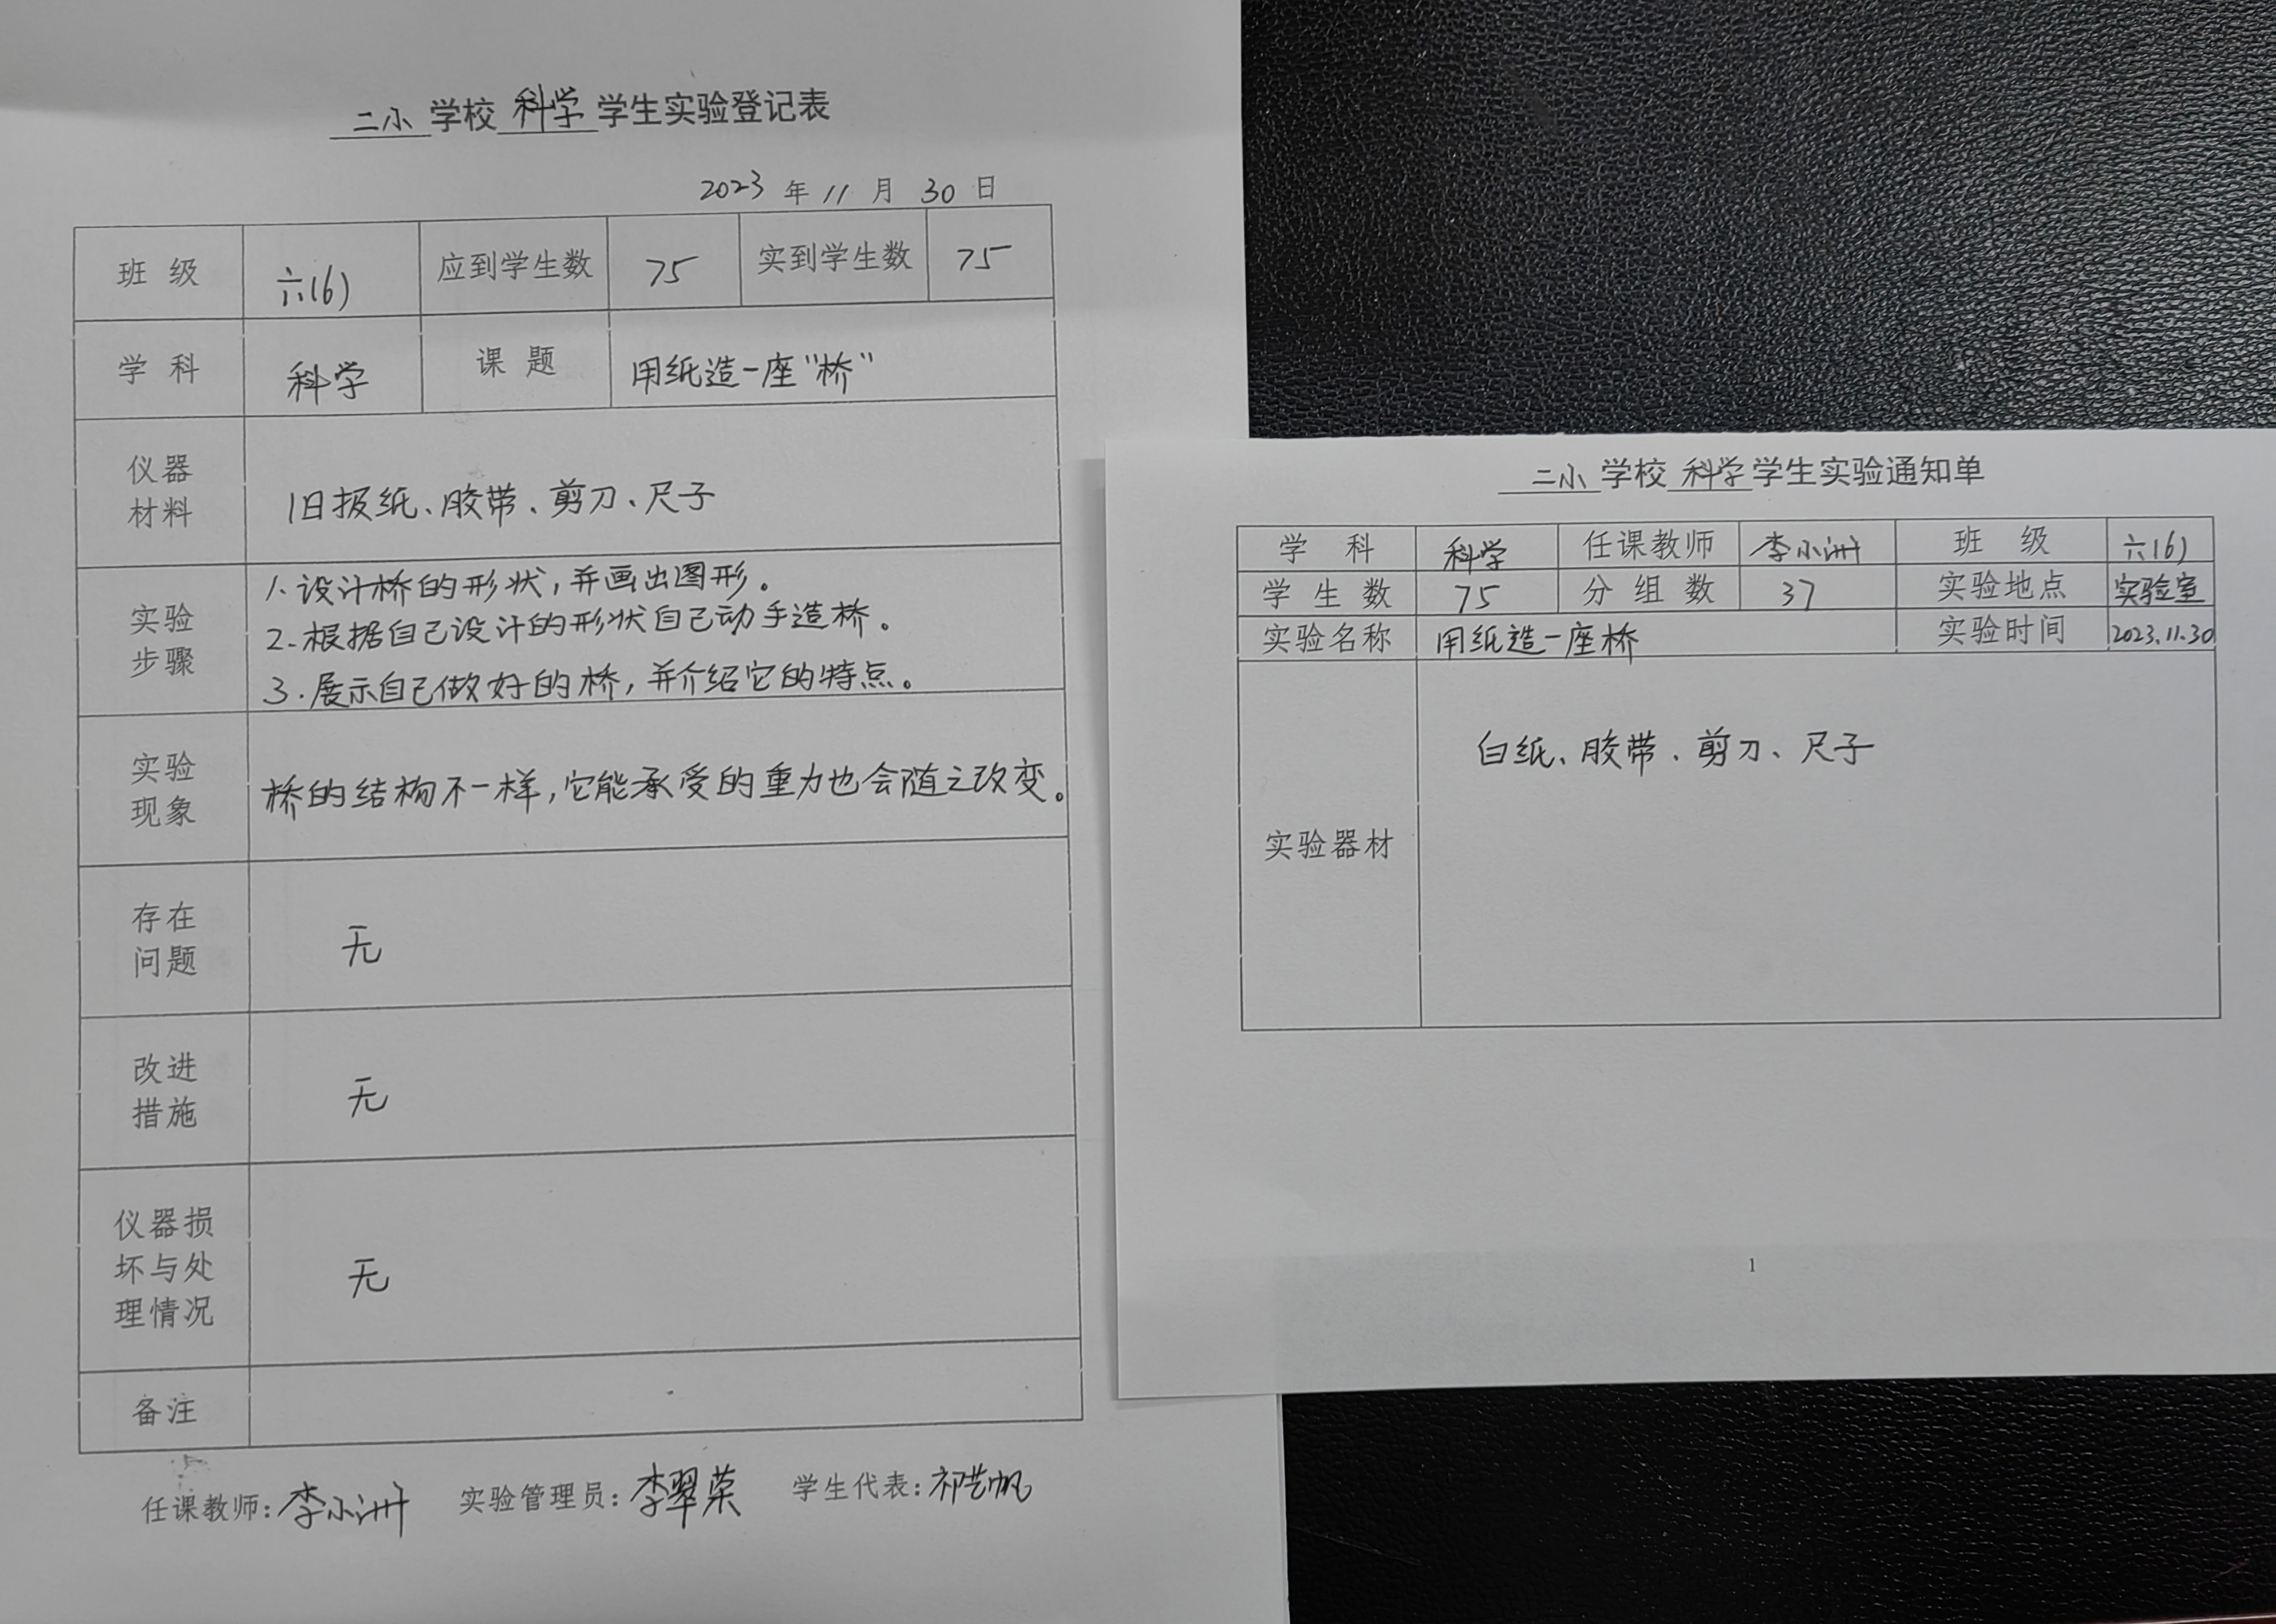 二小 学校 科学 学生实验登记表
2023 年 11 月 30 日
班 级 六(6) 应到学生数 75 实到学生数 75
学 科 科学 课 题 用纸造一座“桥”
仪器
材料
旧报纸、胶带、剪刀、尺子
实验
步骤
1. 设计桥的形状,并画出图形。
2. 根据自己设计的形状自己动手造桥。
3. 展示自己做好的桥,并介绍它的特点。
实验
现象
桥的结构不一样,它能承受的重力也会随之改变。
存在
问题
无
改进
措施
无
仪器损
坏与处
理情况
无
备注
任课教师:李小洲 实验管理员:李翠荣 学生代表:祁艺帆
二小 学校 科学 学生实验通知单
学 科 科学 任课教师 李小洲 班 级 六(6)
学 生 数 75 分 组 数 37 实验地点 实验室
实验名称 用纸造一座桥 实验时间 2023.11.30
实验器材
白纸、胶带、剪刀、尺子
1